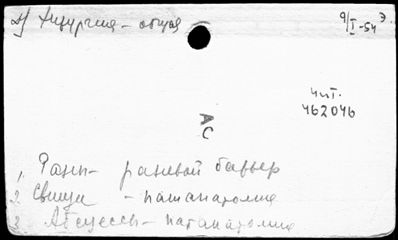 д) Хирургия - общая
9/I-54 Э.
Чит.
462046
АС
1. Раны - раневой барьер
2. Свищи - патанатомия
3. Абсцессы - патанатомия